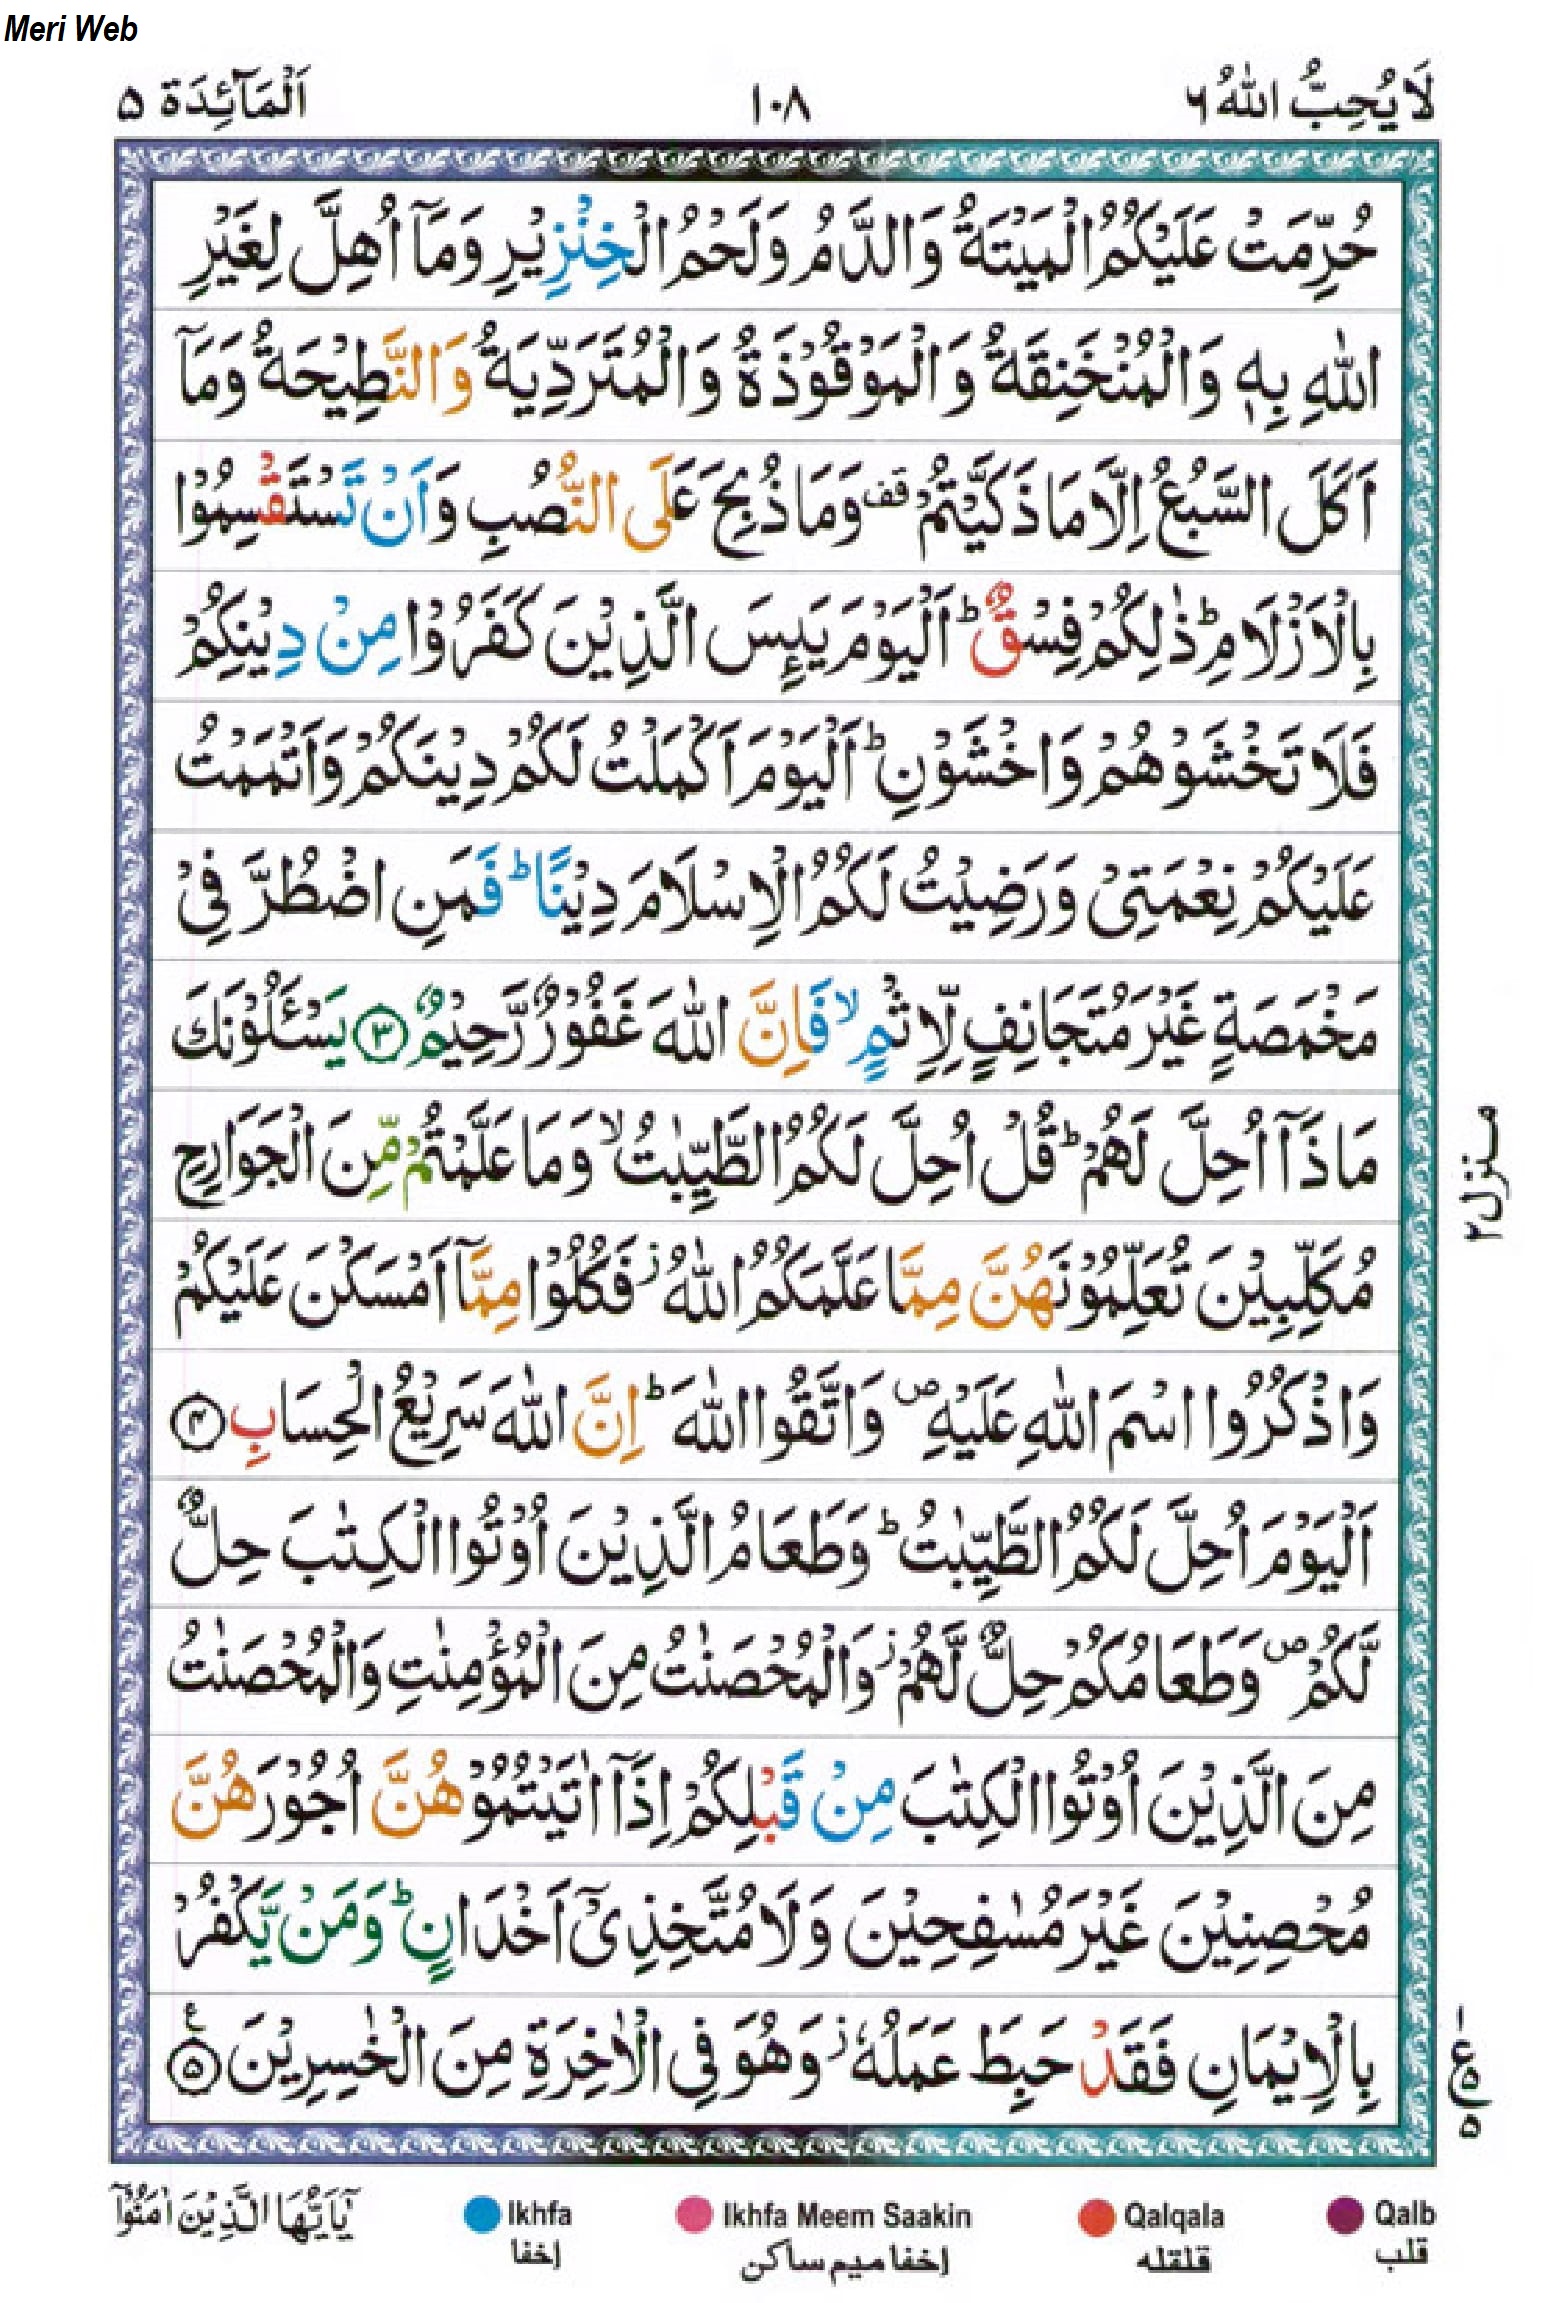 Meri Web
لَا يُحِبُّ اللّٰهُ ٦ ١٠٨ اَلْمَآئِدَة ۵
حُرِّمَتْ عَلَيْكُمُ الْمَيْتَةُ وَالدَّمُ وَلَحْمُ الْخِنْزِيْرِ وَمَآ اُهِلَّ لِغَيْرِ
اللّٰهِ بِهٖ وَالْمُنْخَنِقَةُ وَالْمَوْقُوْذَةُ وَالْمُتَرَدِّيَةُ وَالنَّطِيْحَةُ وَمَآ
اَكَلَ السَّبُعُ اِلَّا مَا ذَكَّيْتُمْ قف وَمَا ذُبِحَ عَلَى النُّصُبِ وَاَنْ تَسْتَقْسِمُوْا
بِالْاَزْلَامِ ؕ ذٰلِكُمْ فِسْقٌ ؕ اَلْيَوْمَ يَىِٕسَ الَّذِيْنَ كَفَرُوْا مِنْ دِيْنِكُمْ
فَلَا تَخْشَوْهُمْ وَاخْشَوْنِ ؕ اَلْيَوْمَ اَكْمَلْتُ لَكُمْ دِيْنَكُمْ وَاَتْمَمْتُ
عَلَيْكُمْ نِعْمَتِىْ وَرَضِيْتُ لَكُمُ الْاِسْلَامَ دِيْنًا ؕ فَمَنِ اضْطُرَّ فِىْ
مَخْمَصَةٍ غَيْرَ مُتَجَانِفٍ لِّاِثْمٍ ۙ فَاِنَّ اللّٰهَ غَفُوْرٌ رَّحِيْمٌ ﴿۳﴾ يَسْـَٔلُوْنَكَ
مَاذَآ اُحِلَّ لَهُمْ ؕ قُلْ اُحِلَّ لَكُمُ الطَّيِّبٰتُ ۙ وَمَا عَلَّمْتُمْ مِّنَ الْجَوَارِحِ
مُكَلِّبِيْنَ تُعَلِّمُوْنَهُنَّ مِمَّا عَلَّمَكُمُ اللّٰهُ ز فَكُلُوْا مِمَّآ اَمْسَكْنَ عَلَيْكُمْ
وَاذْكُرُوا اسْمَ اللّٰهِ عَلَيْهِ ص وَاتَّقُوا اللّٰهَ ؕ اِنَّ اللّٰهَ سَرِيْعُ الْحِسَابِ ﴿۴﴾
اَلْيَوْمَ اُحِلَّ لَكُمُ الطَّيِّبٰتُ ؕ وَطَعَامُ الَّذِيْنَ اُوْتُوا الْكِتٰبَ حِلٌّ
لَّكُمْ ص وَطَعَامُكُمْ حِلٌّ لَّهُمْ ز وَالْمُحْصَنٰتُ مِنَ الْمُؤْمِنٰتِ وَالْمُحْصَنٰتُ
مِنَ الَّذِيْنَ اُوْتُوا الْكِتٰبَ مِنْ قَبْلِكُمْ اِذَآ اٰتَيْتُمُوْهُنَّ اُجُوْرَهُنَّ
مُحْصِنِيْنَ غَيْرَ مُسٰفِحِيْنَ وَلَا مُتَّخِذِىْٓ اَخْدَانٍ ؕ وَمَنْ يَّكْفُرْ
بِالْاِيْمَانِ فَقَدْ حَبِطَ عَمَلُهٗ ز وَهُوَ فِى الْاٰخِرَةِ مِنَ الْخٰسِرِيْنَ ﴿۵﴾ ع
منزل ٢
١ ع ۵ ۵
يٰٓاَيُّهَا الَّذِيْنَ اٰمَنُوْٓا Ikhfa Ikhfa Meem Saakin Qalqala Qalb
اخفا اخفا میم ساکن قلقله قلب